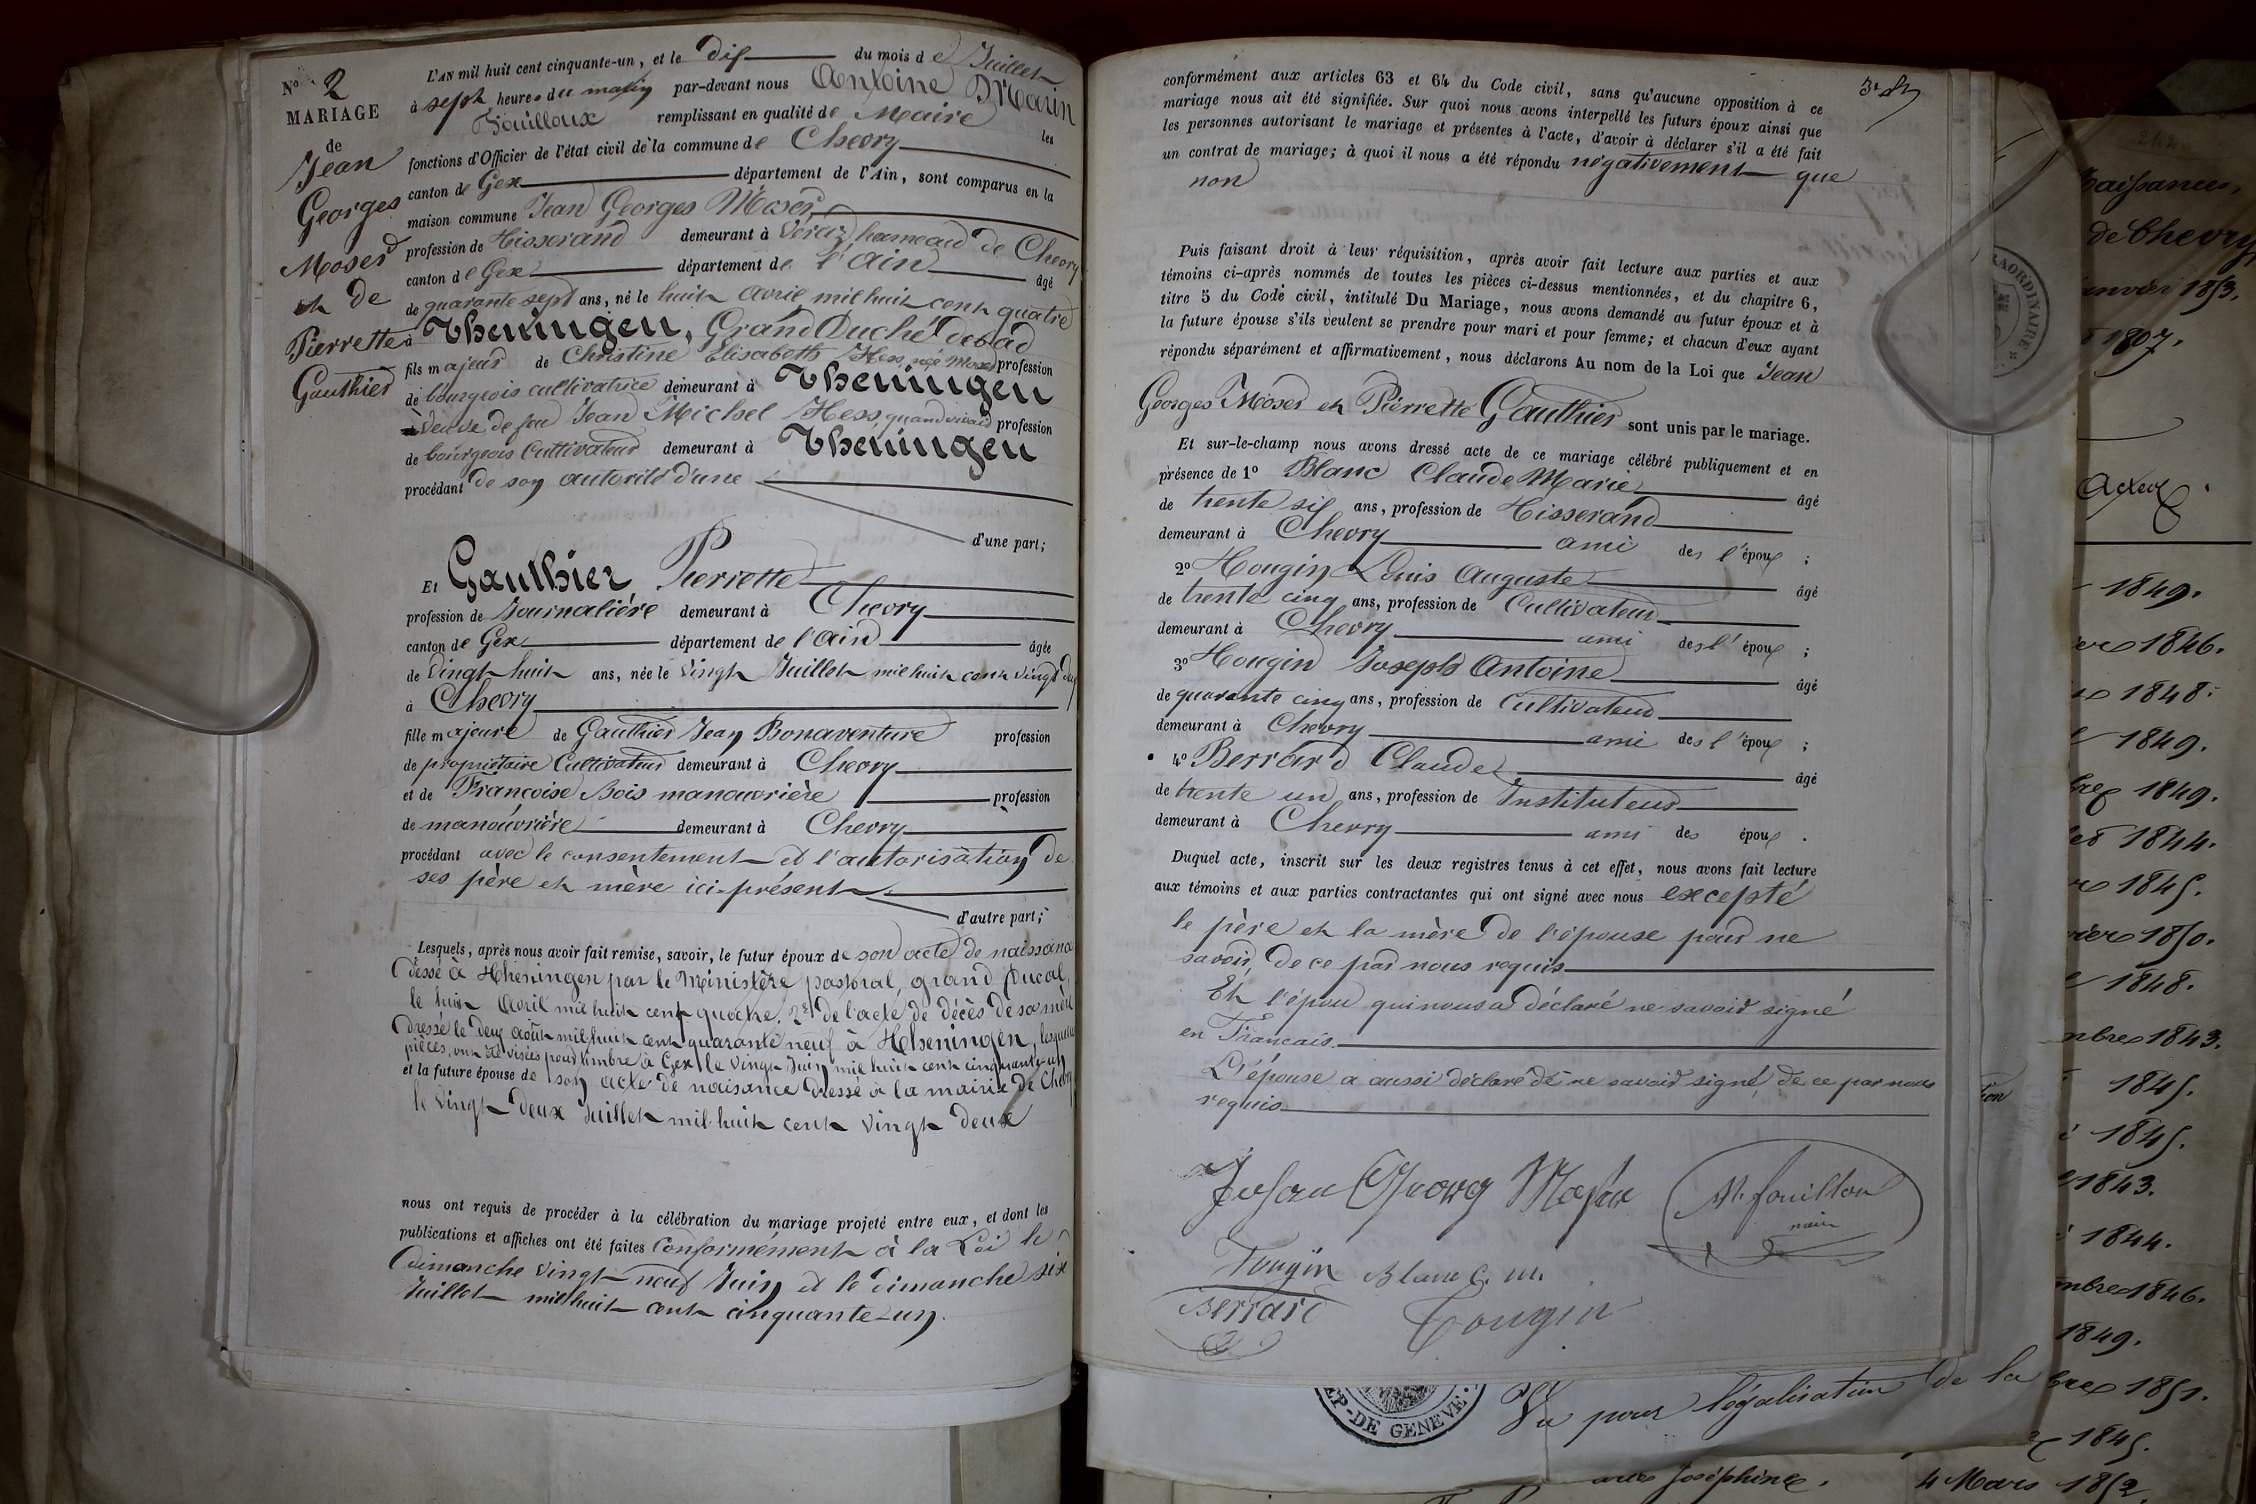 N° 2
MARIAGE
de
Jean
Georges
Moser
et de
Pierrette
Gauthier
L'AN mil huit cent cinquante-un, et le dix du mois de Juillet
à sept heures du matin par-devant nous Antoine Marin
Fouilloux remplissant en qualité de Maire les
fonctions d'Officier de l'état civil de la commune de Chevry
canton de Gex département de l'Ain, sont comparus en la
maison commune Jean Georges Moser
profession de Tisserand demeurant à Véraz, hameau de Chevry
canton de Gex département de l'Ain âgé
de quarante sept ans, né le huit avril mil huit cent quatre
à Theningen, Grand Duché de bad
fils majeur de Christine Elisabeth Hess, née Moser profession
de bourgeois cultivatrice demeurant à Theningen
Veuve de feu Jean Michel Hess, quand vivait profession
de bourgeois Cultivateur demeurant à Theningen
procédant de son autorité d'une
d'une part;
Et Gauthier Pierrette
profession de Journalière demeurant à Chevry
canton de Gex département de l'Ain âgée
de vingt huit ans, née le vingt Juillet mil huit cent vingt deux
à Chevry
fille majeure de Gauthier Jean Bonaventure profession
de propriétaire Cultivateur demeurant à Chevry
et de Françoise Bois manouvrière profession
de manouvrière demeurant à Chevry
procédant avec le consentement et l'autorisation de
ses père et mère ici-présent
d'autre part;
Lesquels, après nous avoir fait remise, savoir, le futur époux de son acte de naissance
dessé à Theningen par le Ministère pastoral, grand Ducal,
le huit Avril mil huit cent quatre, 2° de l'acte de décès de sa mère
dressé le deux Août mil huit cent quarante neuf à Theningen, lesquelles
pièces, ont été visées pour timbre à Gex le vingt Juin mil huit cent cinquante-un
et la future épouse de son acte de naisance dressé à la mairie de Chevry
le vingt-deux Juillet mil huit cent vingt deux
nous ont requis de procéder à la célébration du mariage projeté entre eux, et dont les
publications et affiches ont été faites Conformément à la Loi le
dimanche vingt-neuf Juin et le dimanche six
Juillet mil huit cent cinquante-un.
conformément aux articles 63 et 64 du Code civil, sans qu'aucune opposition à ce
mariage nous ait été signifiée. Sur quoi nous avons interpellé les futurs époux ainsi que
les personnes autorisant le mariage et présentes à l'acte, d'avoir à déclarer s'il a été fait
un contrat de mariage; à quoi il nous a été répondu négativement que
non
Puis faisant droit à leur réquisition, après avoir fait lecture aux parties et aux
témoins ci-après nommés de toutes les pièces ci-dessus mentionnées, et du chapitre 6,
titre 5 du Code civil, intitulé Du Mariage, nous avons demandé au futur époux et à
la future épouse s'ils veulent se prendre pour mari et pour femme; et chacun d'eux ayant
répondu séparément et affirmativement, nous déclarons Au nom de la Loi que Jean
Georges Moser et Pierrette Gauthier sont unis par le mariage.
Et sur-le-champ nous avons dressé acte de ce mariage célébré publiquement et en
présence de 1° Blanc Claude Marie âgé
de trente six ans, profession de Tisserand
demeurant à Chevry ami des l'époux ;
2° Tougin Louis Auguste âgé
de trente cinq ans, profession de Cultivateur
demeurant à Chevry ami des l'époux ;
3° Tougin Joseph Antoine âgé
de quarante cinq ans, profession de Cultivateur
demeurant à Chevry ami des l'époux ;
4° Berrard Claude âgé
de trente un ans, profession de Instituteur
demeurant à Chevry ami des époux .
Duquel acte, inscrit sur les deux registres tenus à cet effet, nous avons fait lecture
aux témoins et aux parties contractantes qui ont signé avec nous excepté
le père et la mère de l'épouse pour ne
savoir, de ce par nous requis
Et l'époux qui nous a déclaré ne savoir signé
en Francais.
L'épouse a aussi déclaré de ne savoir signé, de ce par nous
requis
Johan Georg Moser
M. fouilloux
maire
Tougin Blanc C. M.
Berrard Tougin
RAORDINAIRE
DE GENEVE
Vu pour légalisation de la
Naissances,
de Chevry
Janvier 1853.
1807.
Actes
1849.
1846.
1848.
1849.
1849.
1844.
1845.
1850.
1848.
mbre 1843.
1845.
1845.
1843.
1844.
mbre 1846.
1849.
bre 1851.
1845.
avec Joséphine. 4 Mars 1852.